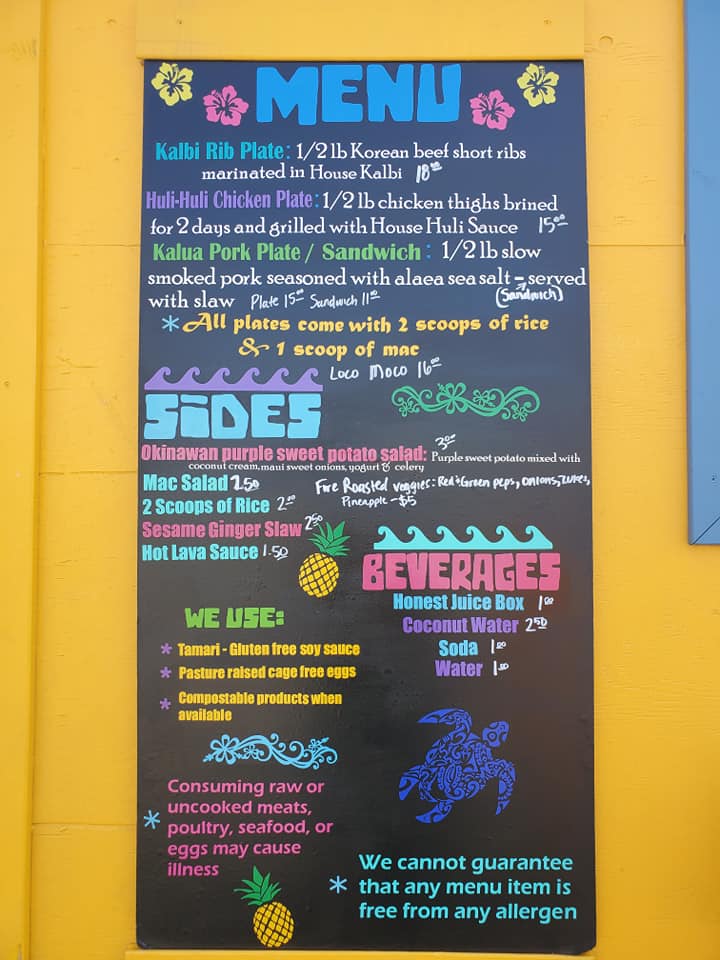 MENU
Kalbi Rib Plate: 1/2 lb Korean beef short ribs
marinated in House Kalbi 18⁰⁰
Huli-Huli Chicken Plate: 1/2 lb chicken thighs brined
for 2 days and grilled with House Huli Sauce 15⁰⁰
Kalua Pork Plate / Sandwich: 1/2 lb slow
smoked pork seasoned with alaea sea salt - served
with slaw Plate 15⁰⁰ Sandwich 11⁰⁰ (Sandwich)
*All plates come with 2 scoops of rice
& 1 scoop of mac
Loco Moco 16⁰⁰
SIDES
Okinawan purple sweet potato salad: 3⁰⁰ Purple sweet potato mixed with
coconut cream, maui sweet onions, yogurt & celery
Mac Salad 2.50
2 Scoops of Rice 2⁰⁰
Sesame Ginger Slaw 2⁵⁰
Hot Lava Sauce 1.50
Fire Roasted veggies: Red+Green peps, onions, zukes,
Pineapple - $5
BEVERAGES
Honest Juice Box 1⁰⁰
Coconut Water 2⁵⁰
Soda 1⁰⁰
Water 1⁰⁰
WE USE:
* Tamari - Gluten free soy sauce
* Pasture raised cage free eggs
* Compostable products when
available
* Consuming raw or
uncooked meats,
poultry, seafood, or
eggs may cause
illness
* We cannot guarantee
that any menu item is
free from any allergen